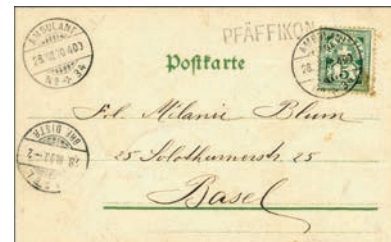 AMBULANT
No 34
PFÄFFIKON
AMBULANT
5
Postkarte
Frl. Milanie Blum
25 Solothurnerstr. 25
Basel